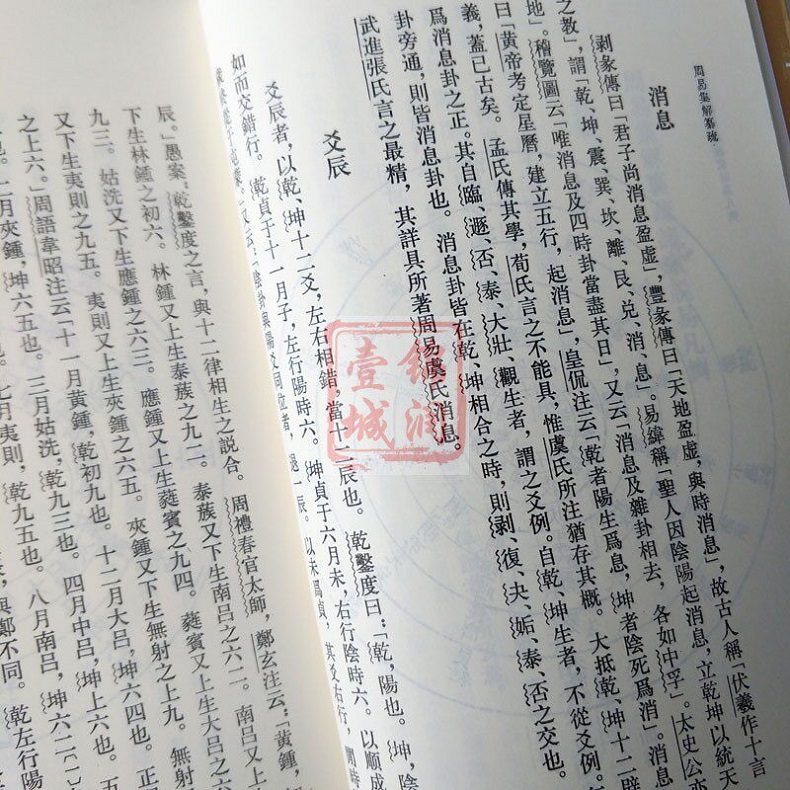 周易集解纂疏
消息
剥彖傳曰「君子尚消息盈虛」,豐彖傳曰「天地盈虛,與時消息」,故古人稱「伏羲作十言
之教」,謂「乾、坤、震、巽、坎、離、艮、兑、消、息」。易緯稱「聖人因陰陽起消息,立乾坤以統天
地」。稽覽圖云「唯消息及四時卦當盡其日」,又云「消息及雜卦相去,各如中孚」。太史公亦
曰「黃帝考定星曆,建立五行,起消息」,皇侃注云「乾者陽生爲息,坤者陰死爲消」。消息
義,蓋已古矣。孟氏傳其學,荀氏言之不能具,惟虞氏所注猶存其概。大抵乾、坤十二辟
爲消息卦之正。其自臨、遯、否、泰、大壯、觀生者,謂之爻例。自乾、坤生者,不從爻例。
卦旁通,則皆消息卦也。消息卦皆在乾、坤相合之時,則剥、復、夬、姤、泰、否之交也。
武進張氏言之最精,其詳具所著周易虞氏消息。
爻辰
爻辰者,以乾、坤十二爻,左右相錯,當十二辰也。乾鑿度曰:「乾,陽也。坤,陰
如而交錯行。乾貞于十一月子,左行陽時六。坤貞于六月未,右行陰時六。以順成
又云:「陰卦與陽爻同位者,退一辰。以未爲貞,其爻右行,間時
辰。」愚案:乾鑿度之言,與十二律相生之説合。周禮春官太師,鄭玄注云:「黃鍾,初
下生林鍾之初六。林鍾又上生泰蔟之九二。泰蔟又下生南吕之六二。南吕又上
九三。姑洗又下生應鍾之六三。應鍾又上生蕤賓之九四。蕤賓又上生大吕之六
又下生夷則之九五。夷則又上生夾鍾之六五。夾鍾又下生無射之上九。無射
之上六。」周語韋昭注云「十一月黃鍾,乾初九也。十二月大吕,坤六四也。正
二月夾鍾,坤六五也。三月姑洗,乾九三也。四月中吕,坤上六也。五
七月夷則,乾九五也。八月南吕,坤六二
與鄭不同。乾左行陽
錦润
壹城